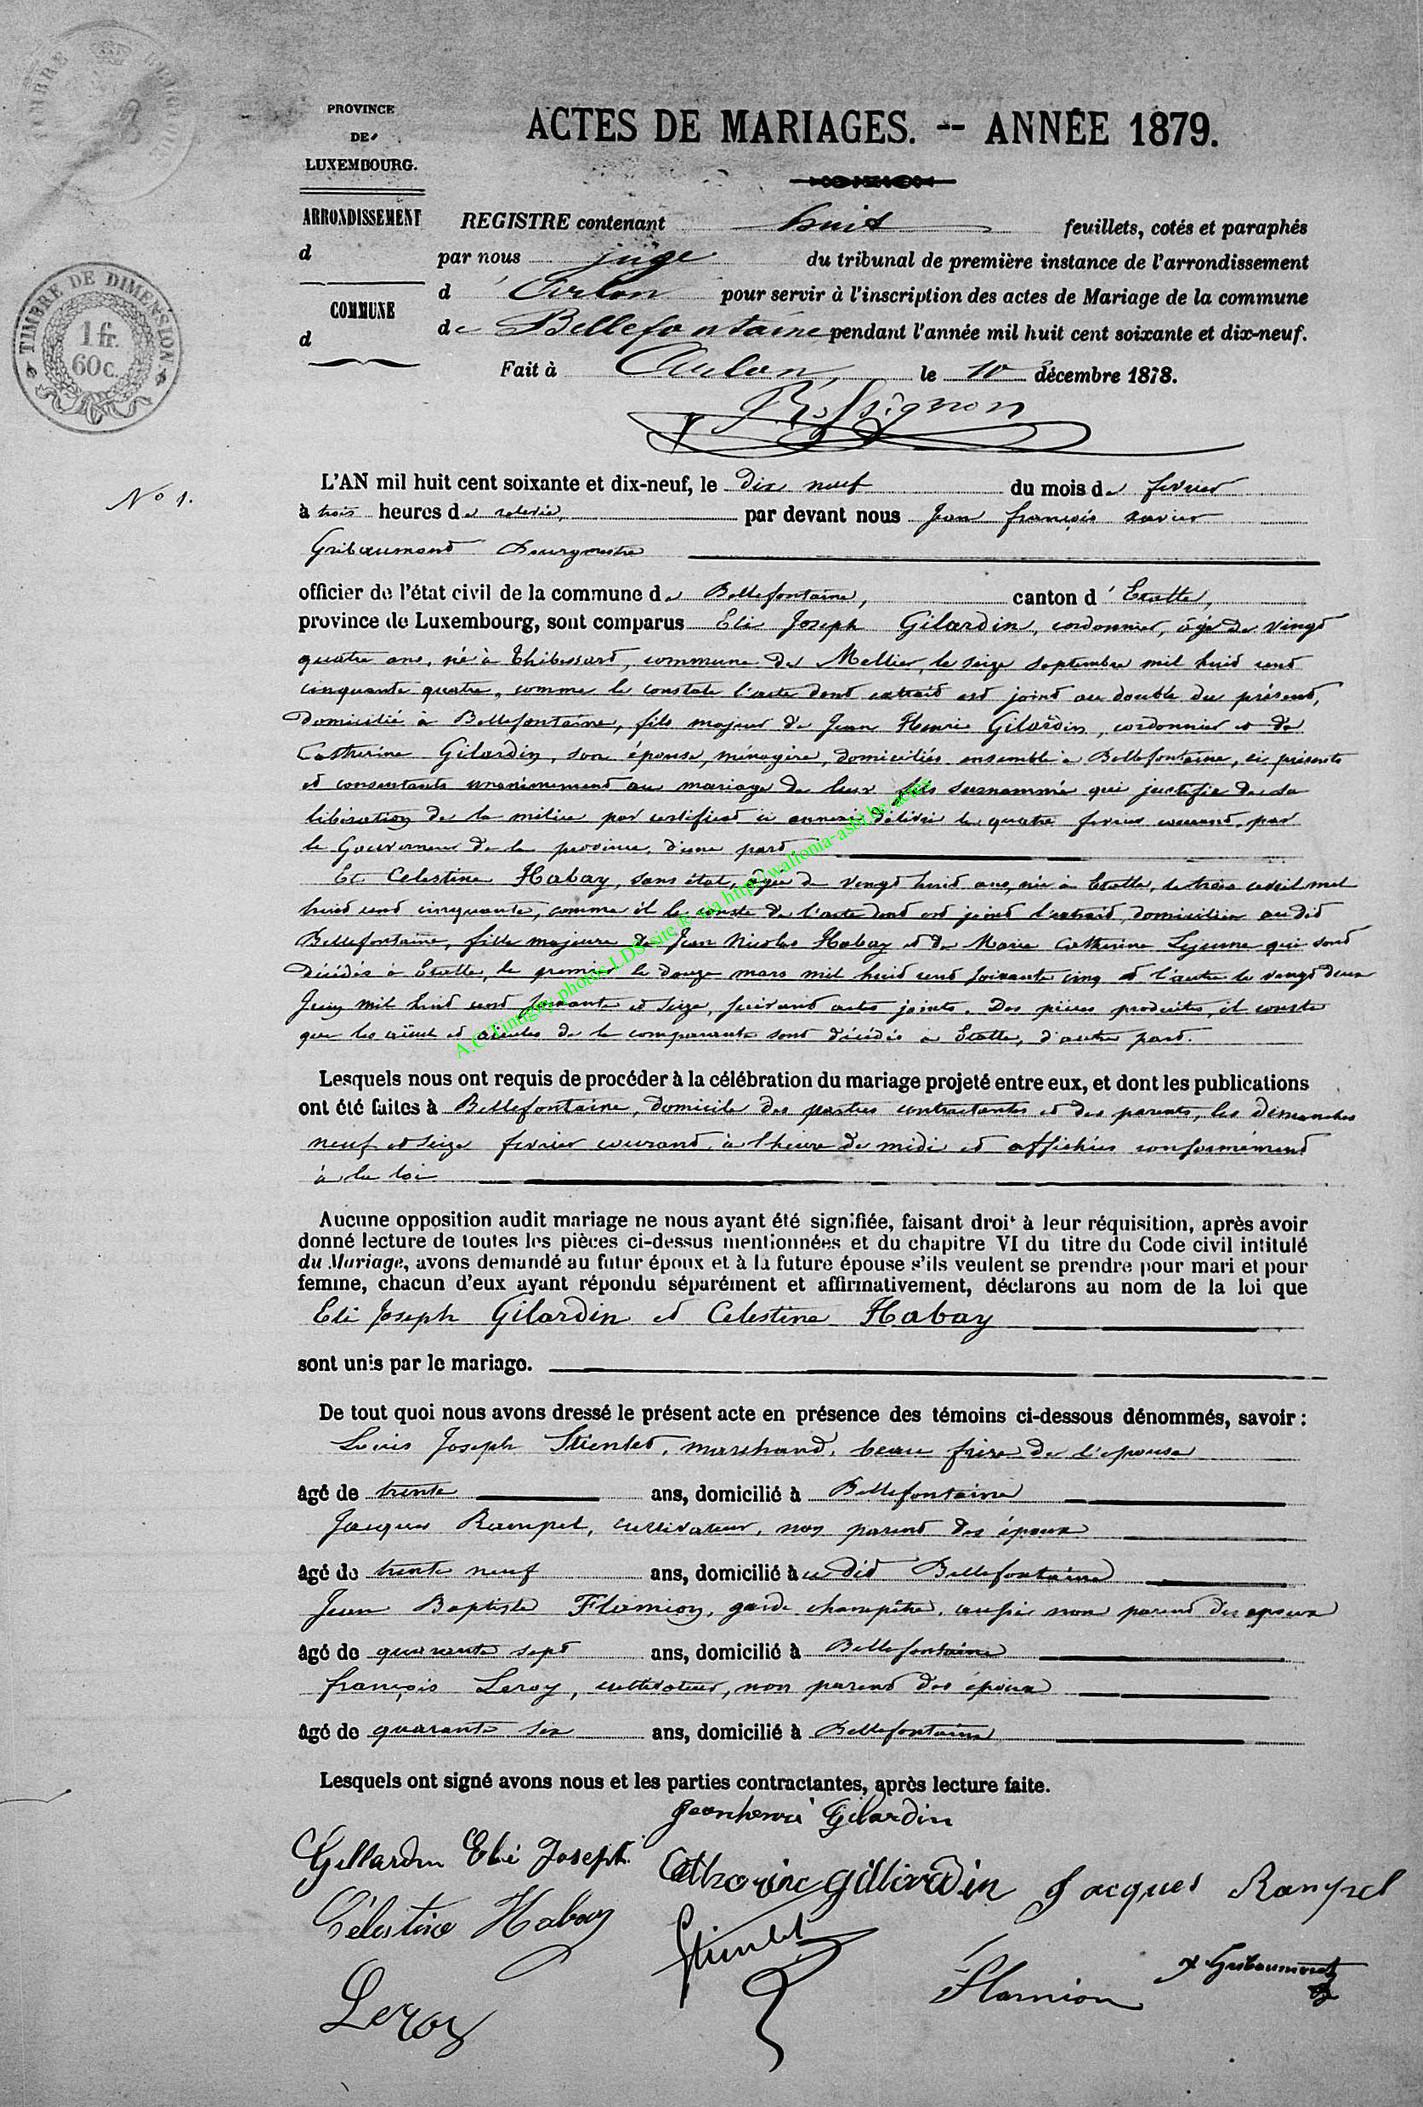 TIMBRE BELGIQUE
TIMBRE DE DIMENSION
1 fr.
60 c.
PROVINCE
DE
LUXEMBOURG.
ARRONDISSEMENT
d
COMMUNE
d
ACTES DE MARIAGES. -- ANNÉE 1879.
REGISTRE contenant huit feuillets, cotés et paraphés
par nous juge du tribunal de première instance de l'arrondissement
d' Arlon pour servir à l'inscription des actes de Mariage de la commune
de Bellefontaine pendant l'année mil huit cent soixante et dix-neuf.
Fait à Arlon, le 10 décembre 1878.
Rossignon
N° 1.
L'AN mil huit cent soixante et dix-neuf, le dix neuf du mois de fevrier
à trois heures de relevée, par devant nous Jean françois xavier
Gribaumont Bourgmestre
officier de l'état civil de la commune de Bellefontaine, canton d'Etalle,
province de Luxembourg, sont comparus Eli Joseph Gilardin, cordonnier, âgé de vingt
quatre ans, né à Thibessart, commune de Mellier, le seize septembre mil huit cent
cinquante quatre, comme le constate l'acte dont extrait est joint au double du présent,
domicilié à Bellefontaine, fils majeur de Jean Henri Gilardin, cordonnier et de
Catherine Gilardin, son épouse, ménagère, domiciliés ensemble à Bellefontaine, ici présents
et consentants unanimement au mariage de leur fils susnommé qui justifie de sa
libération de la milice par certificat ci annexé délivré le quatre fevrier courant, par
le Gouverneur de la province, d'une part
Et Celestine Habay, sans état, âgée de vingt huit ans, née à Etalle, le trois avril mil
huit cent cinquante, comme il le conste de l'acte dont est joint l'extrait, domiciliée audit
Bellefontaine, fille majeure de Jean Nicolas Habay et de Marie Catherine Lejeune qui sont
décédés à Etalle, le premier le douze mars mil huit cent soixante cinq et l'autre le vingt deux
Juin mil huit cent soixante et seize, suivant actes joints. Des pièces produites, il conste
que les aïeuls et aieules de la comparante sont décédés à Etalle, d'autre part.
Lesquels nous ont requis de procéder à la célébration du mariage projeté entre eux, et dont les publications
ont été faites à Bellefontaine, domicile des parties contractantes et des parents, les dimanches
neuf et seize fevrier courant, à l'heure de midi et affichées conformément
à la loi
Aucune opposition audit mariage ne nous ayant été signifiée, faisant droit à leur réquisition, après avoir
donné lecture de toutes les pièces ci-dessus mentionnées et du chapitre VI du titre du Code civil intitulé
du Mariage, avons demandé au futur époux et à la future épouse s'ils veulent se prendre pour mari et pour
femme, chacun d'eux ayant répondu séparément et affirmativement, déclarons au nom de la loi que
Eli Joseph Gilardin et Celestine Habay
sont unis par le mariage.
De tout quoi nous avons dressé le présent acte en présence des témoins ci-dessous dénommés, savoir :
Louis Joseph Stienlet, marchand, beau frère de l'épouse
âgé de trente ans, domicilié à Bellefontaine
Jacques Rampel, cultivateur, non parent des époux
âgé de trente neuf ans, domicilié à udit Bellefontaine
Jean Baptiste Flamion, garde champêtre, aussi non parent des époux
âgé de quarante sept ans, domicilié à Bellefontaine
françois Leroy, cultivateur, non parent des époux
âgé de quarante six ans, domicilié à Bellefontaine
Lesquels ont signé avons nous et les parties contractantes, après lecture faite.
Jeanhenri Gilardin
Gillardin Eli Joseph
Catherine gillardin Jacques Rampel
Célestine Habay
Stienlet
Flamion
Gribaumont
Leroy
A.C. Tintigny photos LDS site & via http://wallonia-asbl.be/actes